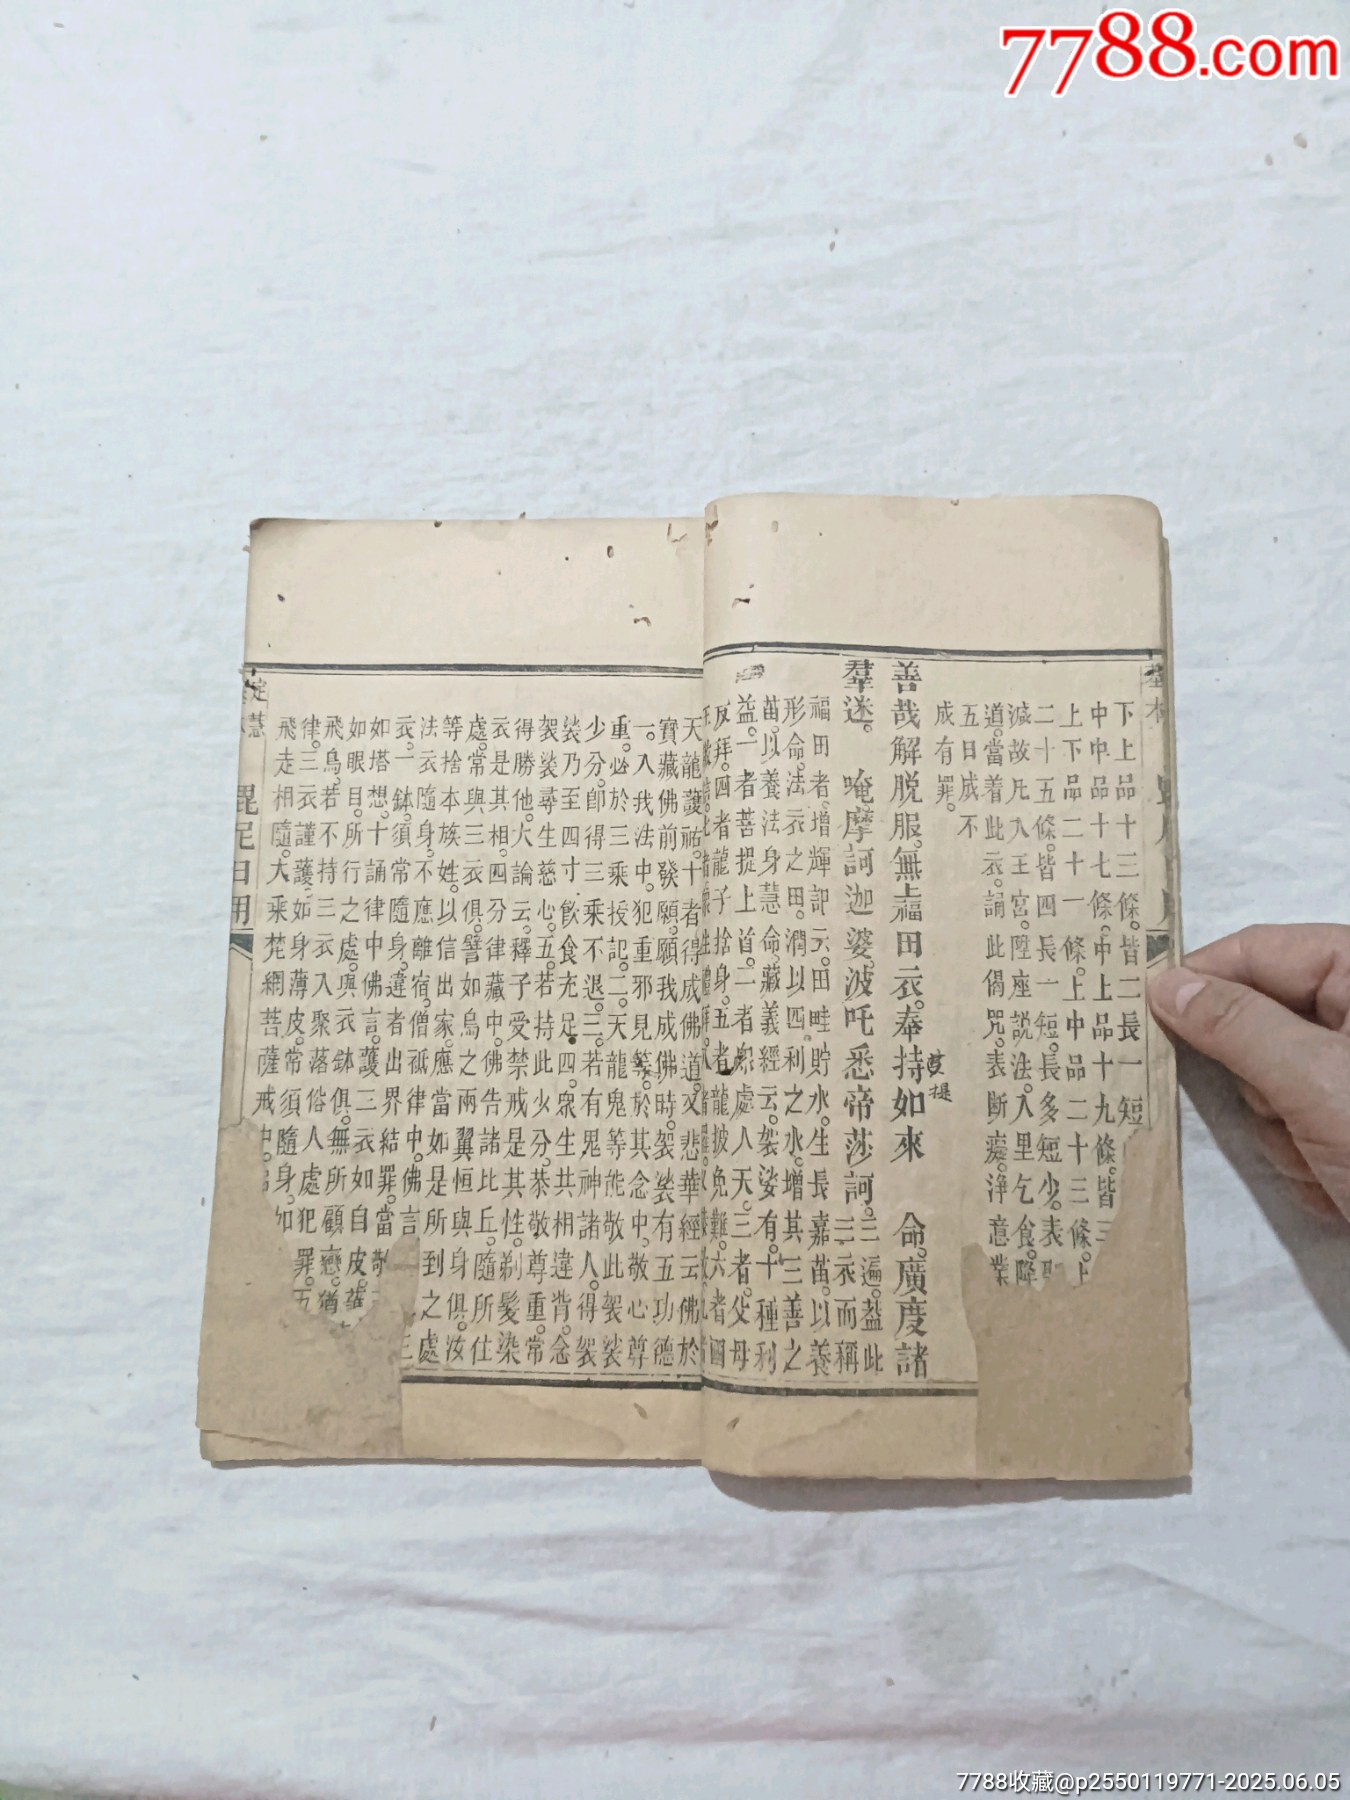 7788.com
下上品十三條。皆二長一短
中中品十七條。中上品十九條。皆三
上下品二十一條。上中品二十三條。上
二十五條。皆四長一短。長多短少。表聖
減故。凡入王宮。陞座説法。入里乞食。降
道。當着此衣。誦此偈咒。表斷癡。淨意業
五日成不
成有罪。
善哉解脱服。無上福田衣。奉持如來命。廣度諸
皮提
羣迷。
唵摩訶迦婆。波吒悉帝莎訶。三遍。益此
三衣而稱
福田者。增輝記云。田畦貯水。生長嘉苗。以養
形命。法衣之田。潤以四利之水。增其三善之
苗。以養法身慧命。藏義經云。袈裟有十種利
益。一者菩提上首。二者衆處人天。三者父母
反拜。四者龍子捨身。五者龍披免難。六者國
天龍護祐。十者得成佛道。又悲華經云。佛於
寶藏佛前發願。願我成佛時。袈裟有五功德
一。入我法中。犯重邪見等。於其念中。敬心尊
重。必於三乘授記。二。天龍鬼等。能敬此袈裟
少分。卽得三乘不退。三。若有鬼神諸人。得袈
裟乃至四寸。飲食充足。四。衆生共相違背。念
袈裟尋生慈心。五。若持此少分。恭敬尊重。常
得勝他。大論云。釋子受禁戒是其性。剃髮染
衣是其相。四分律藏中。佛告諸比丘。隨所仕
處。常與三衣俱。譬如鳥之兩翼。恒與身俱。汝
等捨本族姓。以信出家。應當如是。所到之處
法衣隨身。不應離宿。僧祇律中。佛言
衣。一鉢。須常隨身。違者出界結罪。當敬
如塔想。十誦律中。佛言。護三衣如自皮。
如眼目。所行之處。與衣鉢俱。無所顧戀。猶
飛鳥。若不持三衣入聚落俗人處。犯罪。五
律。三衣謹護如身薄皮。常須隨身。如
飛走相隨。大乘梵網菩薩戒中。
毘尼日用
7788收藏@p2550119771-2025.06.05